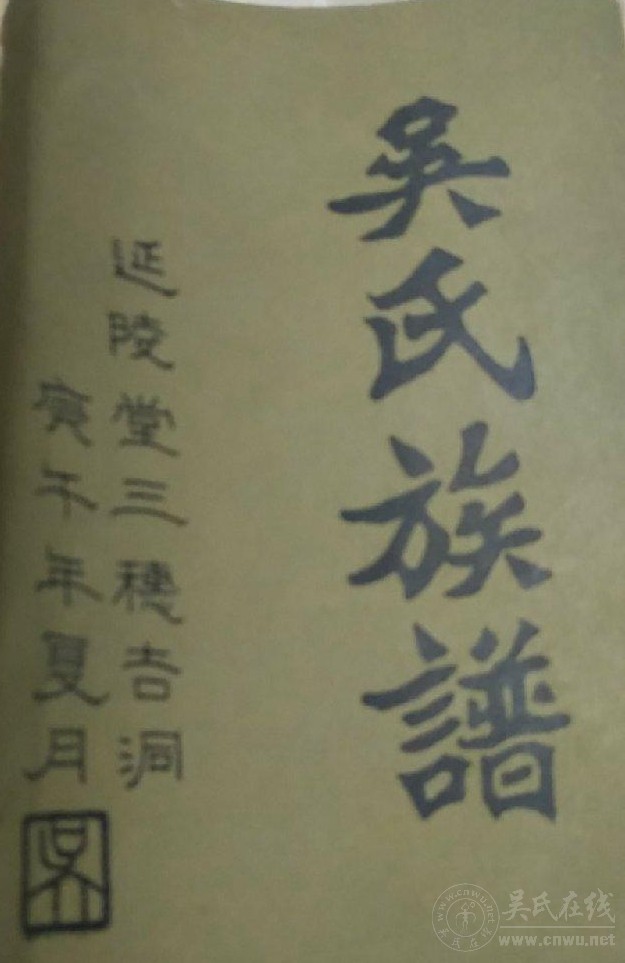 吳氏族譜
延陵堂三穗吉洞
庚午年夏月
吴
吴氏在线
www.cnwu.net